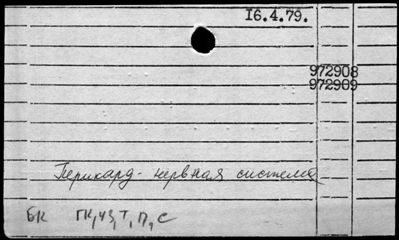 16.4.79.
972908
972909
Перикард - нервная система
БК ГК, ЧЗ, Т, П, С